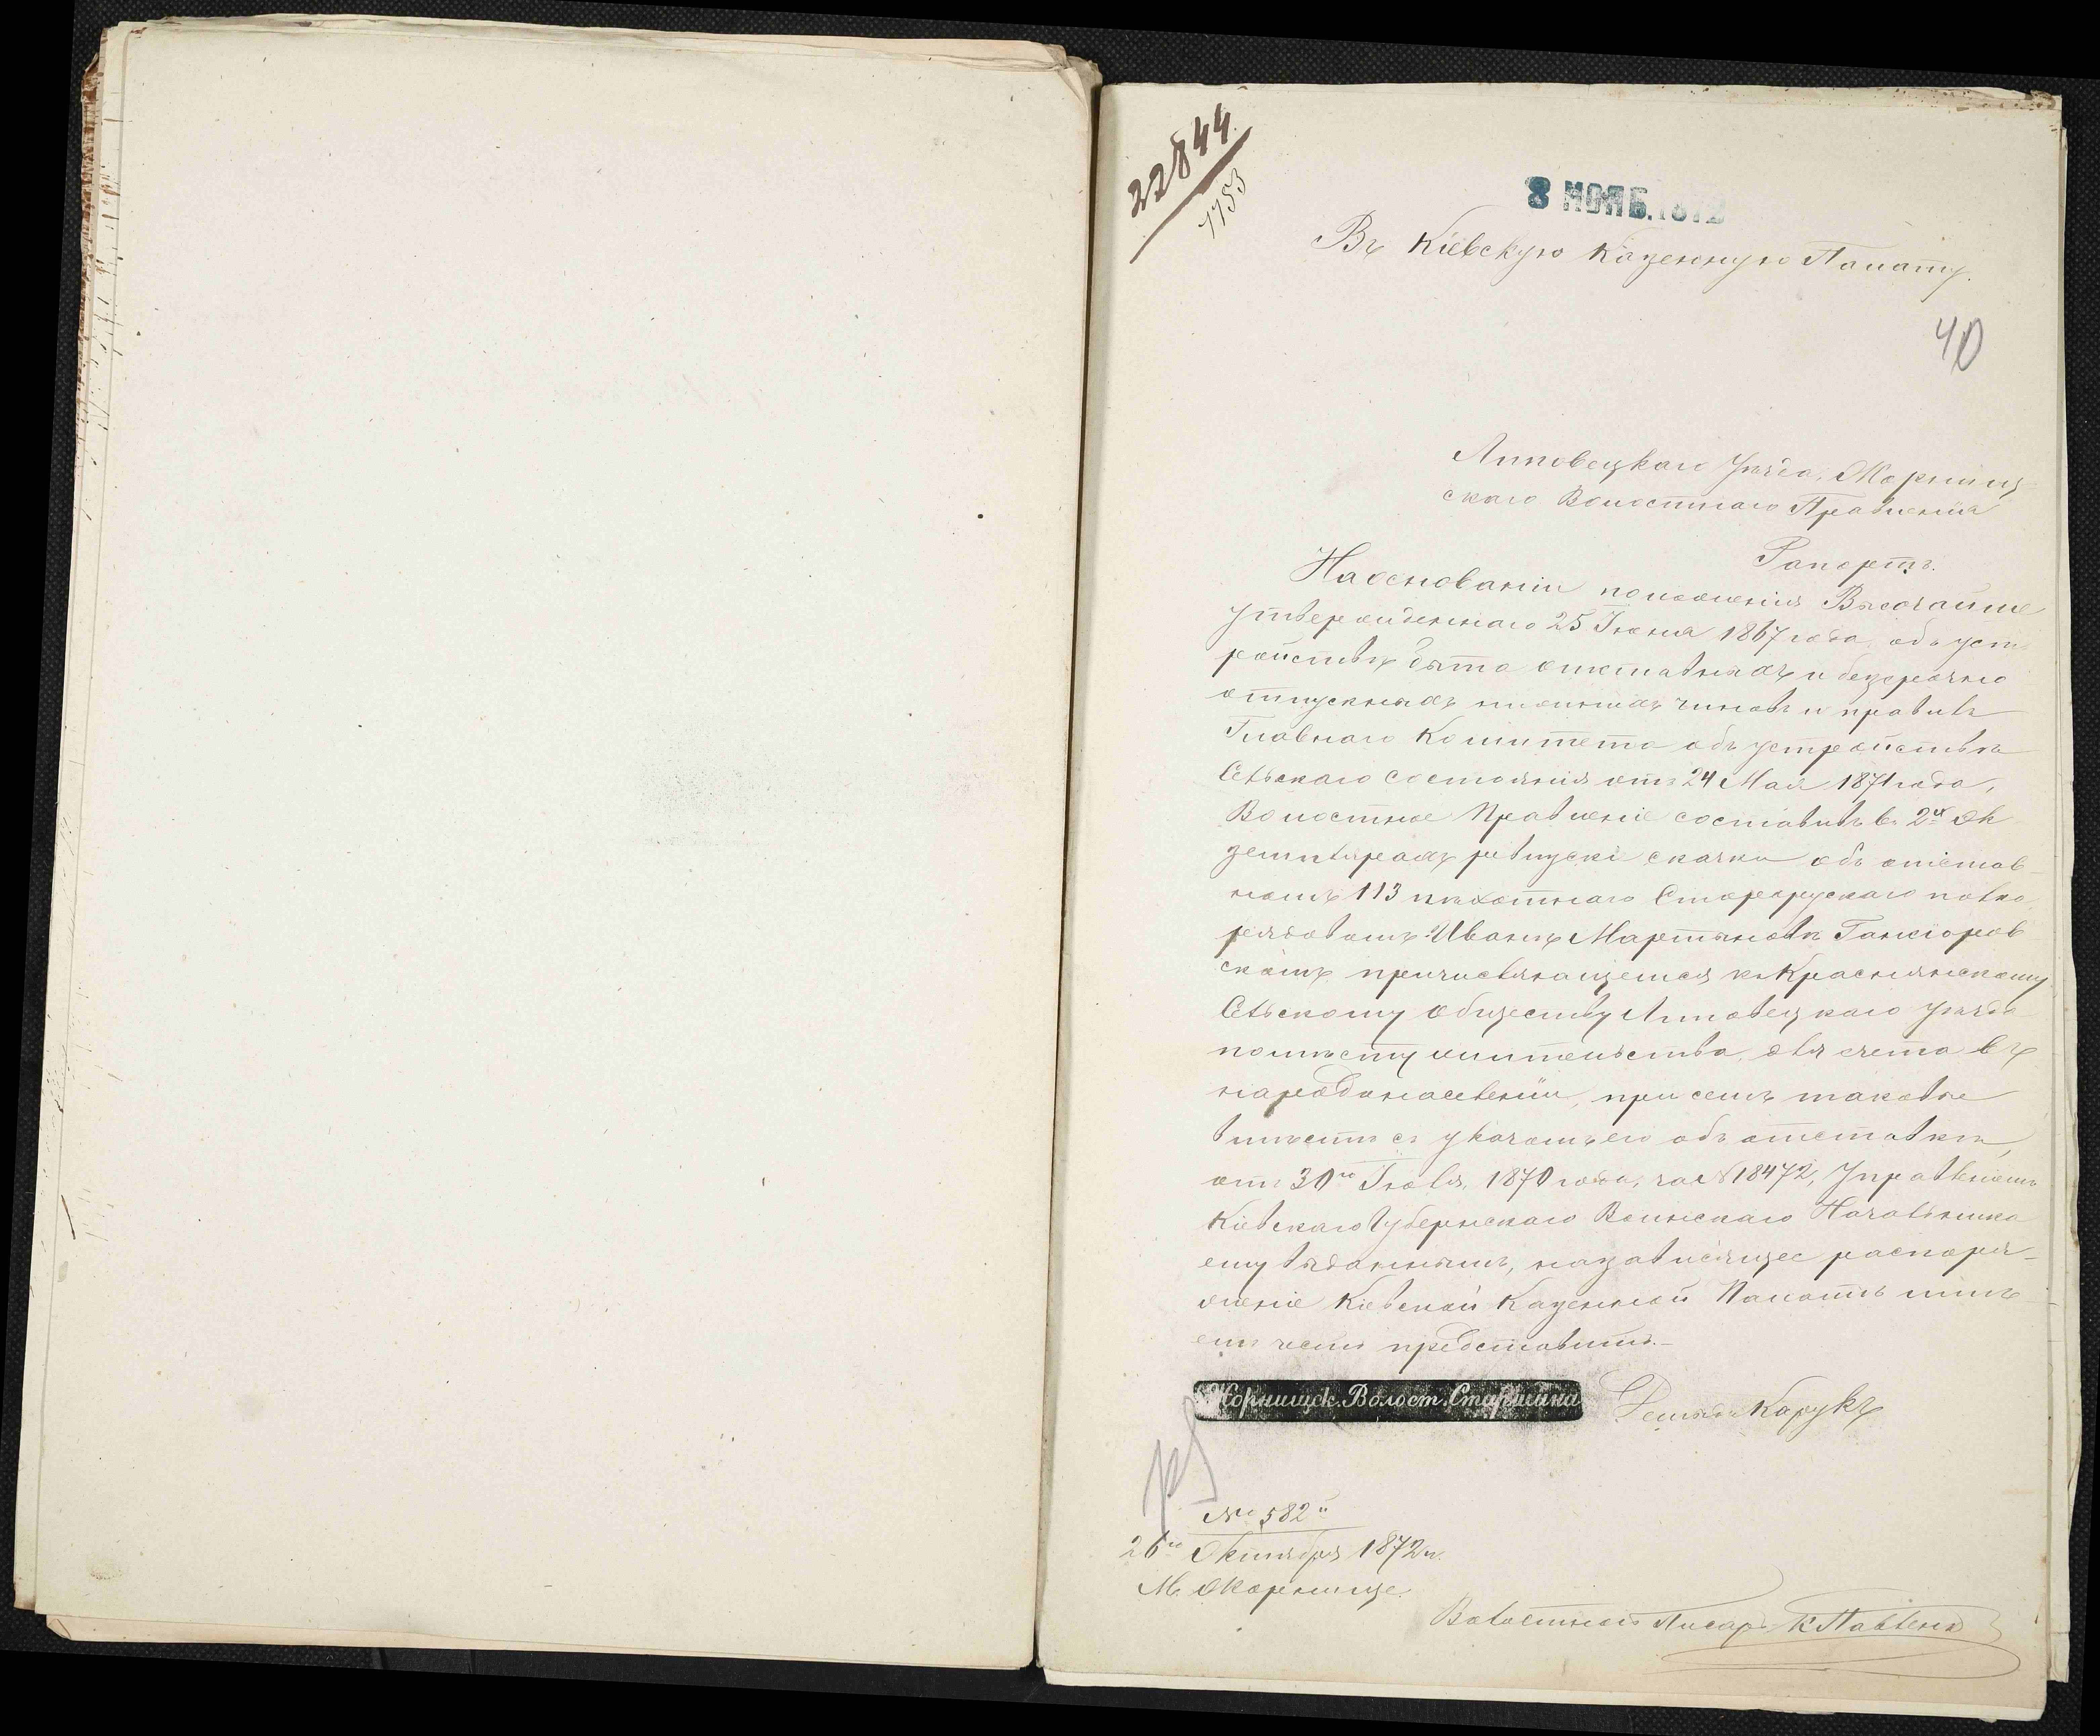 22844
1753
8 НОЯБ. 1872
Въ Кіевскую Казенную Палату.
40
Липовецкаго Уѣзда, Жорнищ-
скаго Волостнаго Правленія
Рапортъ.
На основаніи положенія Высочайше
утвержденнаго 25 Іюня 1867 года, объ уст-
ройствѣ быта отставныхъ и безсрочно
отпускныхъ нижнихъ чиновъ и правилъ
Главнаго Комитета объ устройствѣ
Сельскаго состоянія отъ 24 Мая 1871 года,
Волостное Правленіе составивъ въ 2хъ эк
земплярахъ ревизскі сказки объ отстав-
номъ 113 пѣхотнаго Старорускаго полка
рядовомъ Иванѣ Мартыновѣ Гонсіоров
скомъ причисляющемся къ Краснянскому
Сельскому обществу Липовецкаго уѣзда
по мѣсту жительства, для счета въ
народонаселеніи, при семъ таковые
вмѣстѣ съ указомъ его объ отставкѣ,
отъ 30го Іюля, 1870 года, за №18472, Управленіемъ
Кіевскаго Губернскаго Воинскаго Начальника
ему выданнымъ, на зависящее распоря-
женіе Кіевской Казенной Палатѣ имѣ
етъ честь представить.-
Жорнищск. Волост. Старшина
Демьян Карукъ
№ 582й
26го Октября 1872 г.
М. Жорнище
Волостной Писарь К Павленк